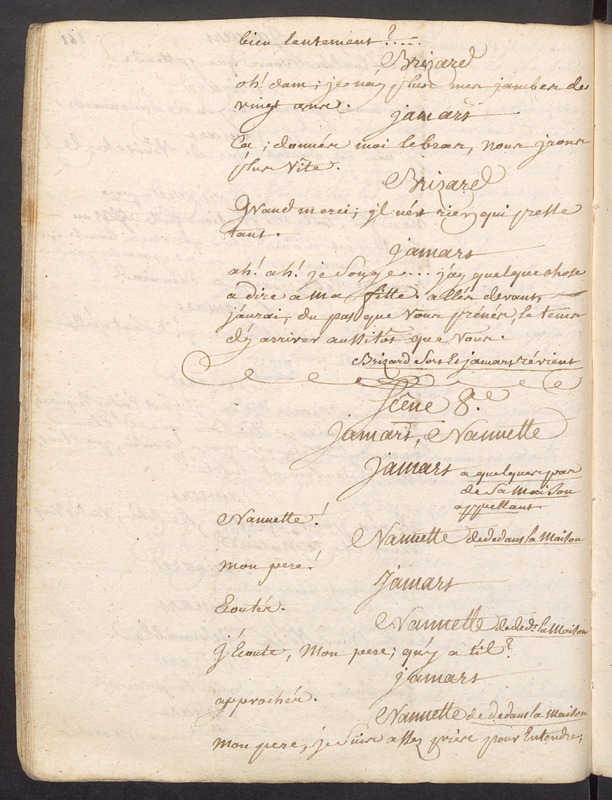 bien lentement ?....
Brizard
oh! dam; je n'ay plus mes jambes de
vingt ans.
jamars
ça; donnés moi le bras, nous jrons
plus vite.
Brizard
Grand merci; jl n'ést rien qui presse
tant.
jamars
ah! ah! je songe... j'ay quelque chose
a dire a ma fille. allés devant,
j'aurai, du pas que vous prenés, le tems
d'y arriver aussitôt que vous.
Brizard sort et jamars révient
Scêne 8.e
Jamars, Nannette
Jamars a quelques pas
de sa maison
appellant
Nannette!
Nannette de dedans la maison
mon pere!
Jamars
Ecoutés.
Nannette de ded.s la maison
j'Ecoute, mon pere; qu'y a t'il?
jamars
approchés.
Nannette de dedans la maison
mon pere, je suis assez près pour Entendre;